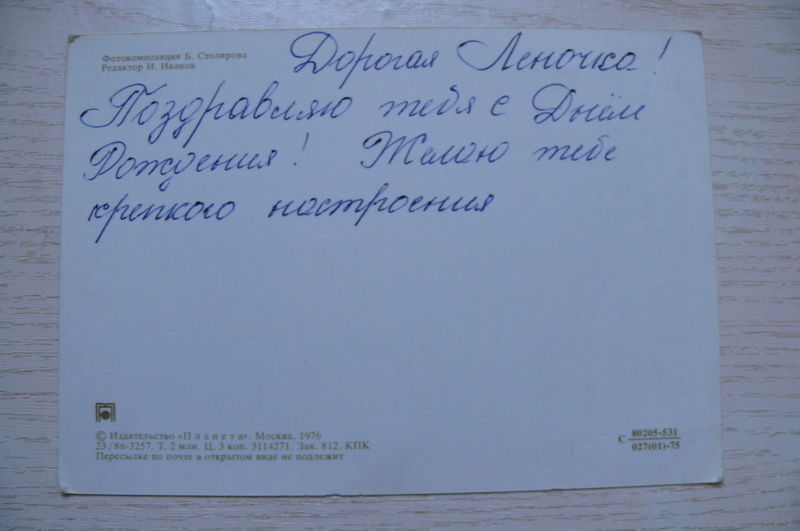 Фотокомпозиция Б. Столярова
Редактор И. Иванов
Дорогая Леночка!
Поздравляю тебя с Днём
Рождения! Желаю тебе
крепкого настроения
© Издательство «Планета». Москва, 1976
23/8п-3257. Т. 2 млн. Ц. 3 коп. 3114271. Зак. 812. КПК
Пересылке по почте в открытом виде не подлежит
С 80205-531
027(01)-75